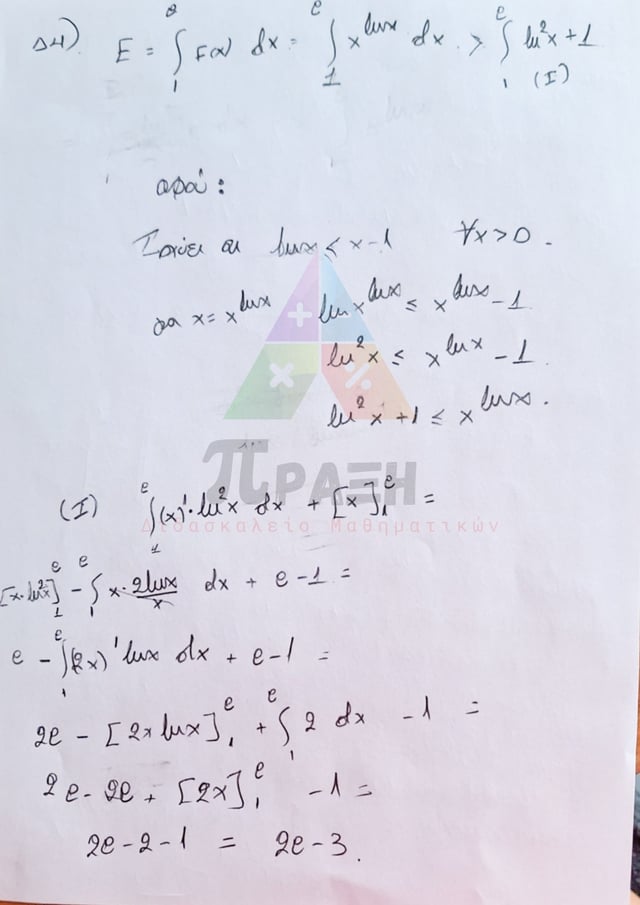 Δ4) E = ∫₁ᵉ F(x) dx = ∫₁ᵉ x^lnx dx > ∫₁ᵉ ln²x + 1
(I)
αφού:
Ισχύει ότι lnx ≤ x - 1 ∀x > 0.
για x = x^lnx lnx^lnx ≤ x^lnx - 1
ln²x ≤ x^lnx - 1
ln²x + 1 ≤ x^lnx.
πΡΑΞΗ
Διδασκαλείο Μαθηματικών
(I) ∫₁ᵉ (x)'·ln²x dx + [x]₁ᵉ =
[x·ln²x]₁ᵉ - ∫₁ᵉ x·2lnx/x dx + e - 1 =
e - ∫₁ᵉ (2x)' lnx dx + e - 1 =
2e - [2x lnx]₁ᵉ + ∫₁ᵉ 2 dx - 1 =
2e - 2e + [2x]₁ᵉ - 1 =
2e - 2 - 1 = 2e - 3.